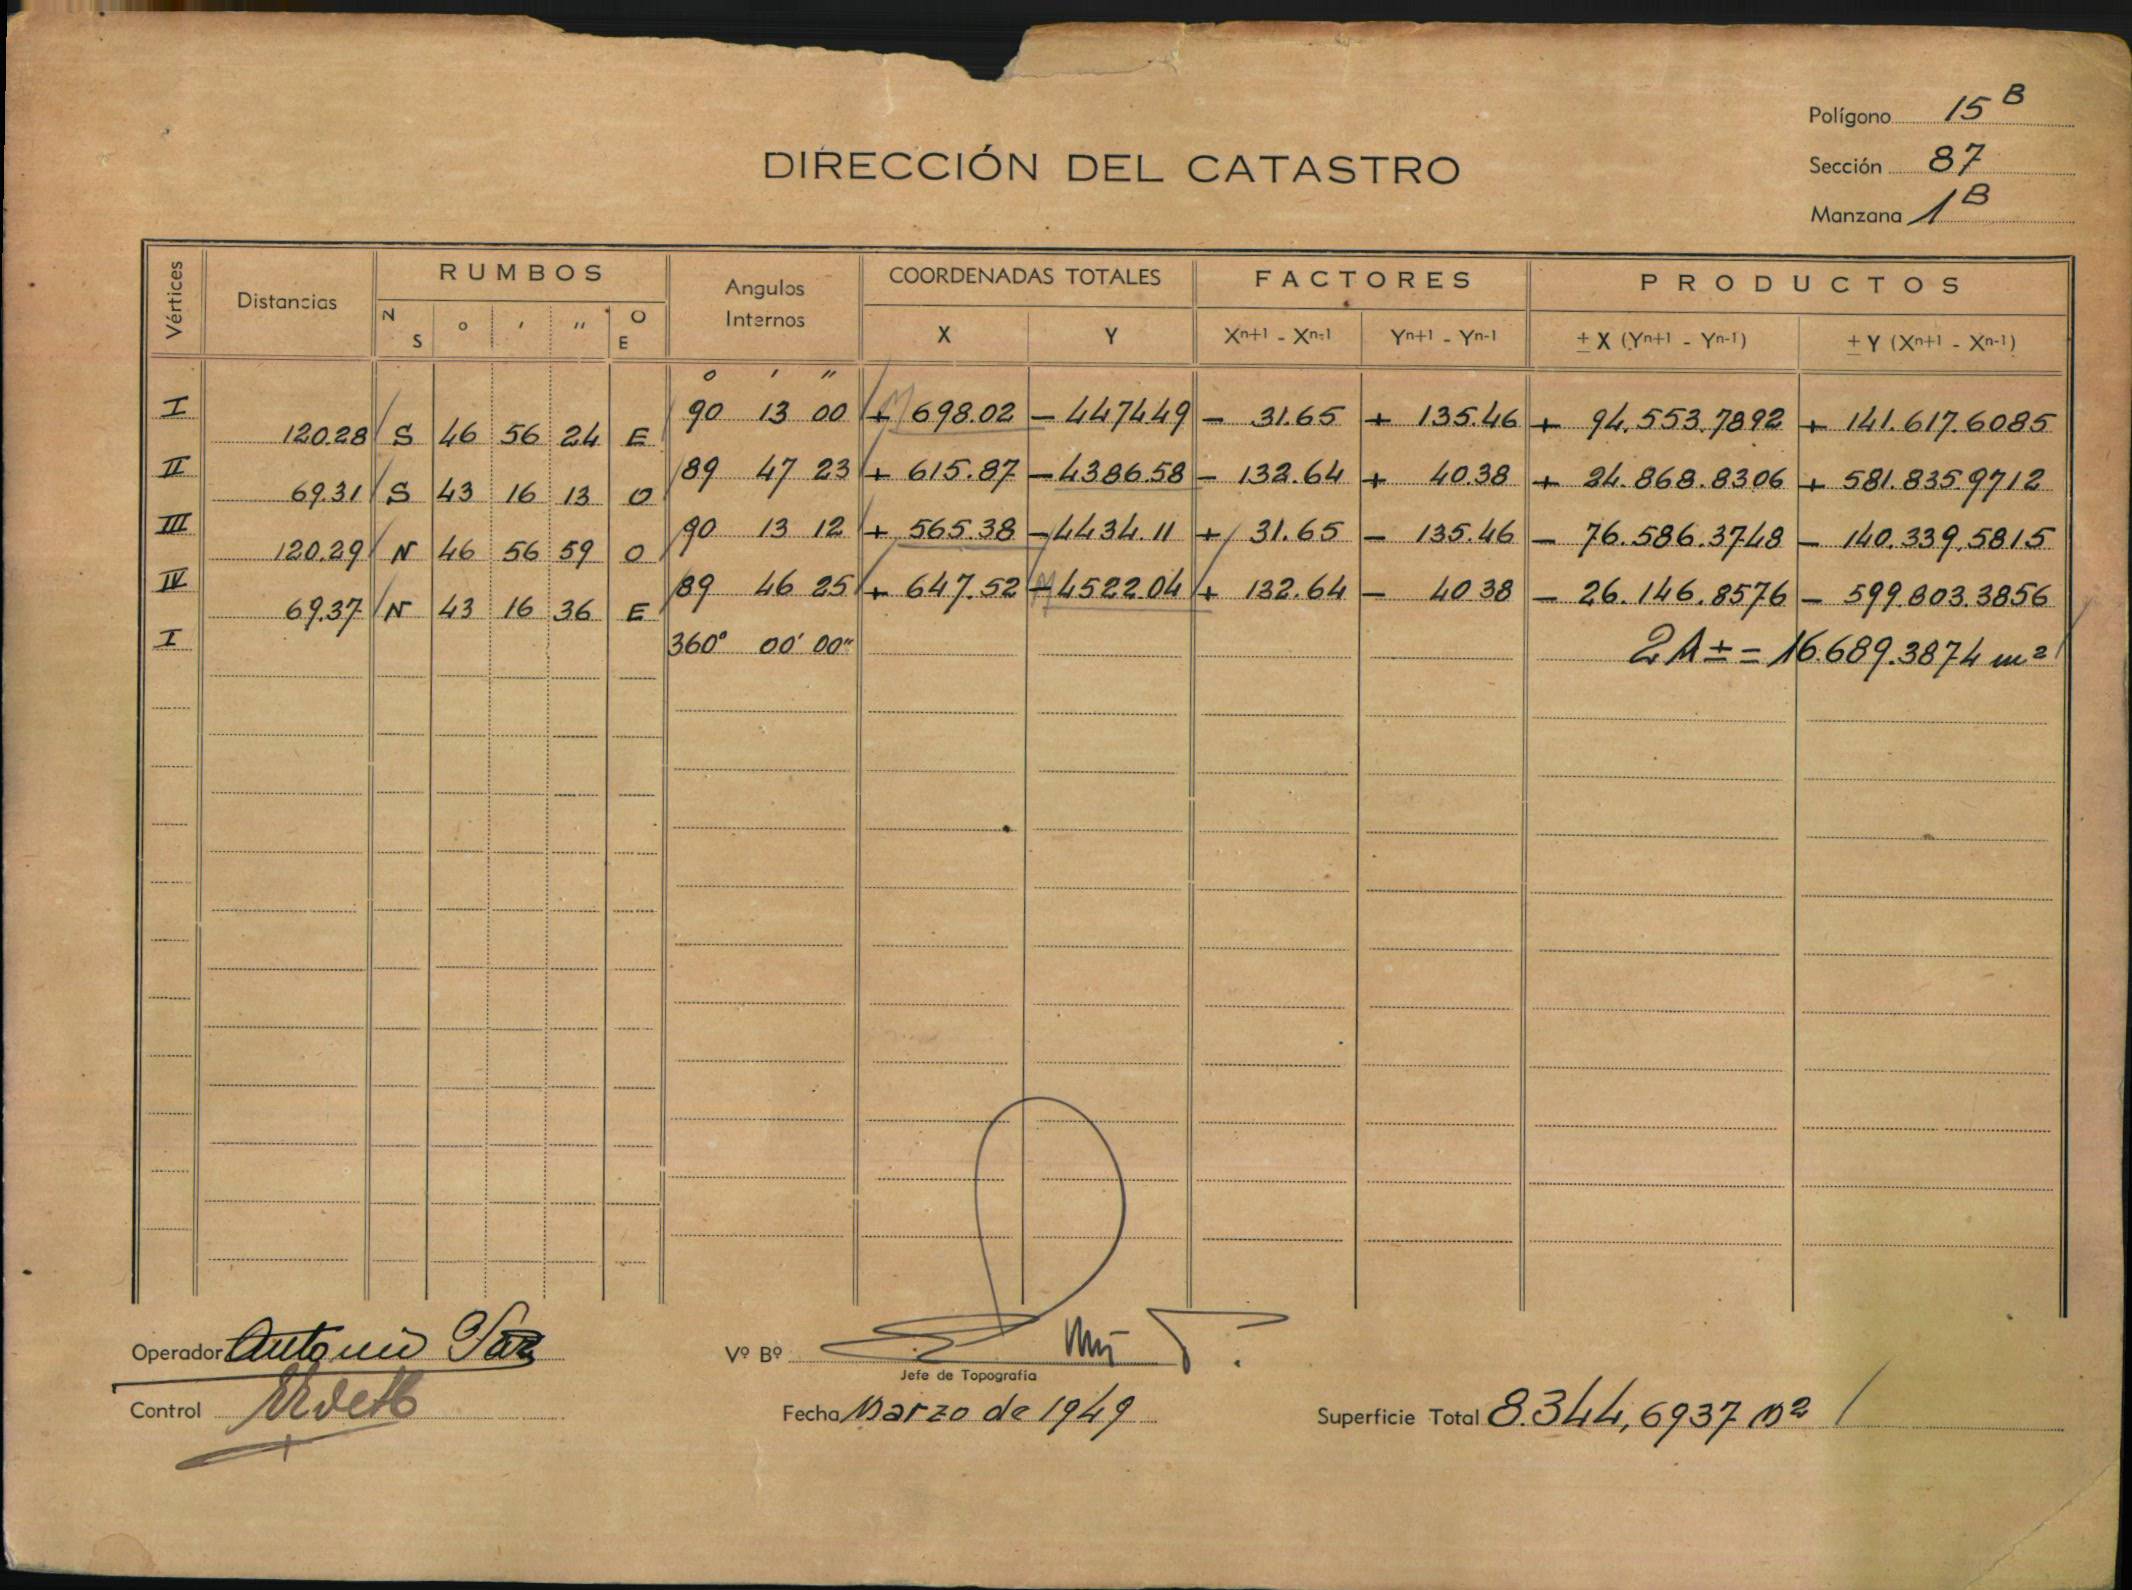 Polígono 15 B
DIRECCIÓN DEL CATASTRO
Sección 87
Manzana 1 B
Vértices Distancias RUMBOS Angulos Internos COORDENADAS TOTALES FACTORES PRODUCTOS
N S ° ' " O E X Y Xn+1 - Xn-1 Yn+1 - Yn-1 ± X (Yn+1 - Yn-1) ± Y (Xn+1 - Xn-1)
° ' "
I 90 13 00 + 698.02 - 447449 - 31.65 + 135.46 + 94.553.7892 + 141.617.6085
120.28 S 46 56 24 E
II 89 47 23 + 615.87 - 4386.58 - 132.64 + 40.38 + 24.868.8306 + 581.835.9712
69.31 S 43 16 13 O
III 90 13 12 + 565.38 - 4434.11 + 31.65 - 135.46 - 76.586.3748 - 140.339.5815
120.29 N 46 56 59 O
IV 89 46 25 + 647.52 - 4522.04 + 132.64 - 40.38 - 26.146.8576 - 599.803.3856
69.37 N 43 16 36 E
I 360° 00' 00" 2A ± = 16.689.3874 m²
Operador Antonio
Vº Bº
Jefe de Topografía
Control
Fecha Marzo de 1949
Superficie Total 8.344,6937 M²